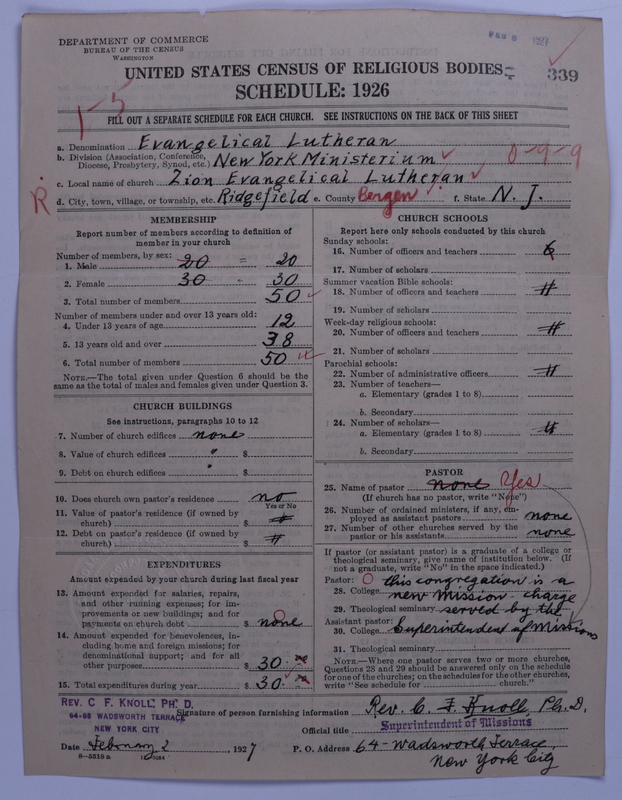 DEPARTMENT OF COMMERCE
BUREAU OF THE CENSUS
WASHINGTON
FEB 8 1927
UNITED STATES CENSUS OF RELIGIOUS BODIES
339
SCHEDULE: 1926
1-5
FILL OUT A SEPARATE SCHEDULE FOR EACH CHURCH. SEE INSTRUCTIONS ON THE BACK OF THIS SHEET
a. Denomination Evangelical Lutheran
b. Division (Association, Conference, Diocese, Presbytery, Synod, etc.) New York Ministerium
0-9-9
c. Local name of church Zion Evangelical Lutheran
R
d. City, town, village, or township, etc. Ridgefield e. County Bergen f. State N. J.
MEMBERSHIP
Report number of members according to definition of
member in your church
Number of members, by sex:
1. Male 20 = 20
2. Female 30 " 30
3. Total number of members 50
Number of members under and over 13 years old:
4. Under 13 years of age 12
5. 13 years old and over 38
6. Total number of members 50
NOTE.—The total given under Question 6 should be the
same as the total of males and females given under Question 3.
CHURCH BUILDINGS
See instructions, paragraphs 10 to 12
7. Number of church edifices none
8. Value of church edifices " $
9. Debt on church edifices " $
10. Does church own pastor's residence no
Yes or No
11. Value of pastor's residence (if owned by
church) $
12. Debt on pastor's residence (if owned by
church) $
EXPENDITURES
Amount expended by your church during last fiscal year
13. Amount expended for salaries, repairs,
and other running expenses; for im-
provements or new buildings; and for
payments on church debt $ none
14. Amount expended for benevolences, in-
cluding home and foreign missions; for
denominational support; and for all
other purposes $ 30
15. Total expenditures during year $ 30
CHURCH SCHOOLS
Report here only schools conducted by this church
Sunday schools:
16. Number of officers and teachers 6
17. Number of scholars
Summer vacation Bible schools:
18. Number of officers and teachers
19. Number of scholars
Week-day religious schools:
20. Number of officers and teachers
21. Number of scholars
Parochial schools:
22. Number of administrative officers
23. Number of teachers—
a. Elementary (grades 1 to 8)
b. Secondary
24. Number of scholars—
a. Elementary (grades 1 to 8)
b. Secondary
PASTOR
25. Name of pastor none Yes
(If church has no pastor, write "None")
26. Number of ordained ministers, if any, em-
ployed as assistant pastors none
27. Number of other churches served by the
pastor or his assistants none
If pastor (or assistant pastor) is a graduate of a college or
theological seminary, give name of institution below. (If
not a graduate, write "No" in the space indicated.)
Pastor: this congregation is a
28. College new mission charge
29. Theological seminary served by the
Assistant pastor:
30. College Superintendent of Missions
31. Theological seminary
NOTE.—Where one pastor serves two or more churches,
Questions 28 and 29 should be answered only on the schedule
for one of the churches; on the schedules for the other churches,
write "See schedule for church."
REV. C F. KNOLL, PH. D.
64-68 WADSWORTH TERRACE
NEW YORK CITY
Signature of person furnishing information Rev. C. F. Knoll, Ph. D.
Official title Superintendent of Missions
Date February 2, 1927
P. O. Address 64- Wadsworth Terrace,
New York City
8—5518 a